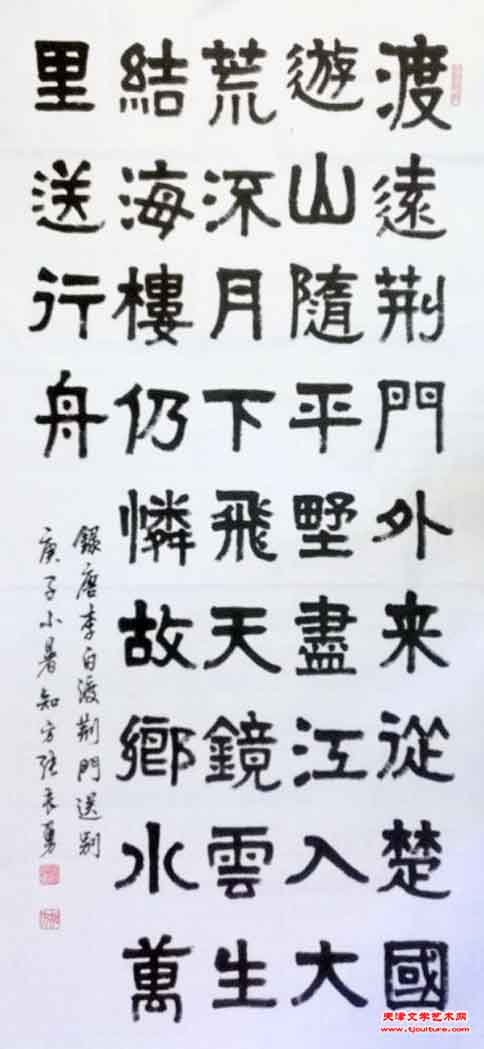 渡遠荆門外来從楚國
遊山隨平墅盡江入大
荒流月下飛天鏡雲生
結海樓仍憐故鄉水萬
里送行舟
録唐李白渡荆門送别
庚子小暑知方张勇
天津文学艺术网
www.tjculture.com